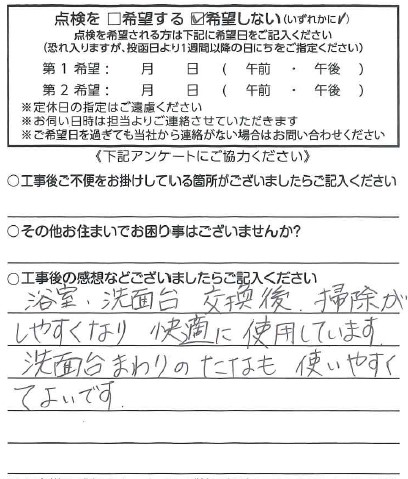 点検を □希望する ☑希望しない(いずれかに✓)
点検を希望される方は下記に希望日をご記入ください
(恐れ入りますが、投函日より1週間以降の日にちをご指定ください)
第1希望: 月 日 ( 午前 ・ 午後 )
第2希望: 月 日 ( 午前 ・ 午後 )
※定休日の指定はご遠慮ください
※お伺い日時は担当よりご連絡させていただきます
※ご希望日を過ぎても当社から連絡がない場合はお問い合わせください
《下記アンケートにご協力ください》
○工事後ご不便をお掛けしている箇所がございましたらご記入ください
○その他お住まいでお困り事はございませんか?
○工事後の感想などございましたらご記入ください
浴室、洗面台 交換後、掃除が
しやすくなり 快適に 使用しています。
洗面台まわりの たなも 使いやすく
てよいです。